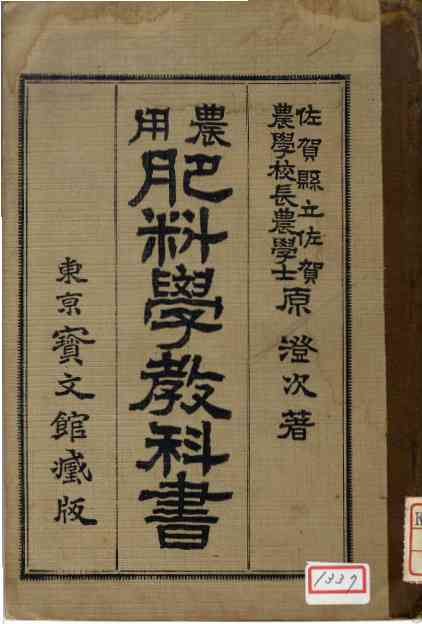 佐賀縣立佐賀
農學校長農學士
原澄次著
農用
肥料學教科書
東京寶文館藏版
1337